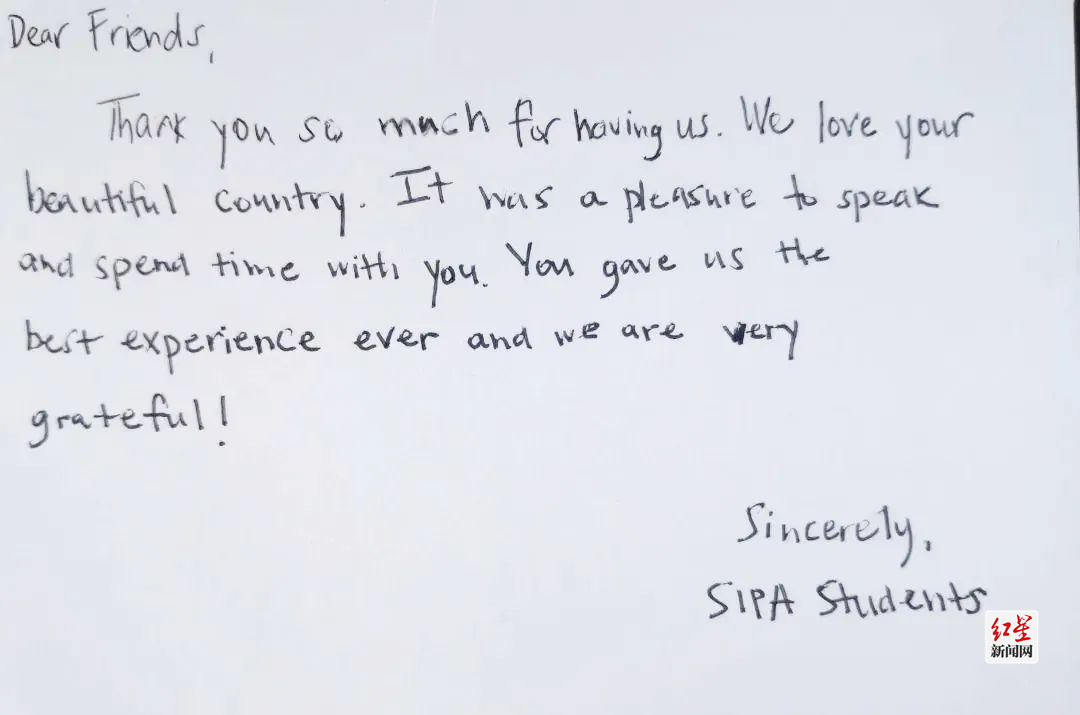 Dear Friends,
Thank you so much for having us. We love your
beautiful country. It was a pleasure to speak
and spend time with you. You gave us the
best experience ever and we are very
grateful!
Sincerely,
SIPA Students
红星
新闻网